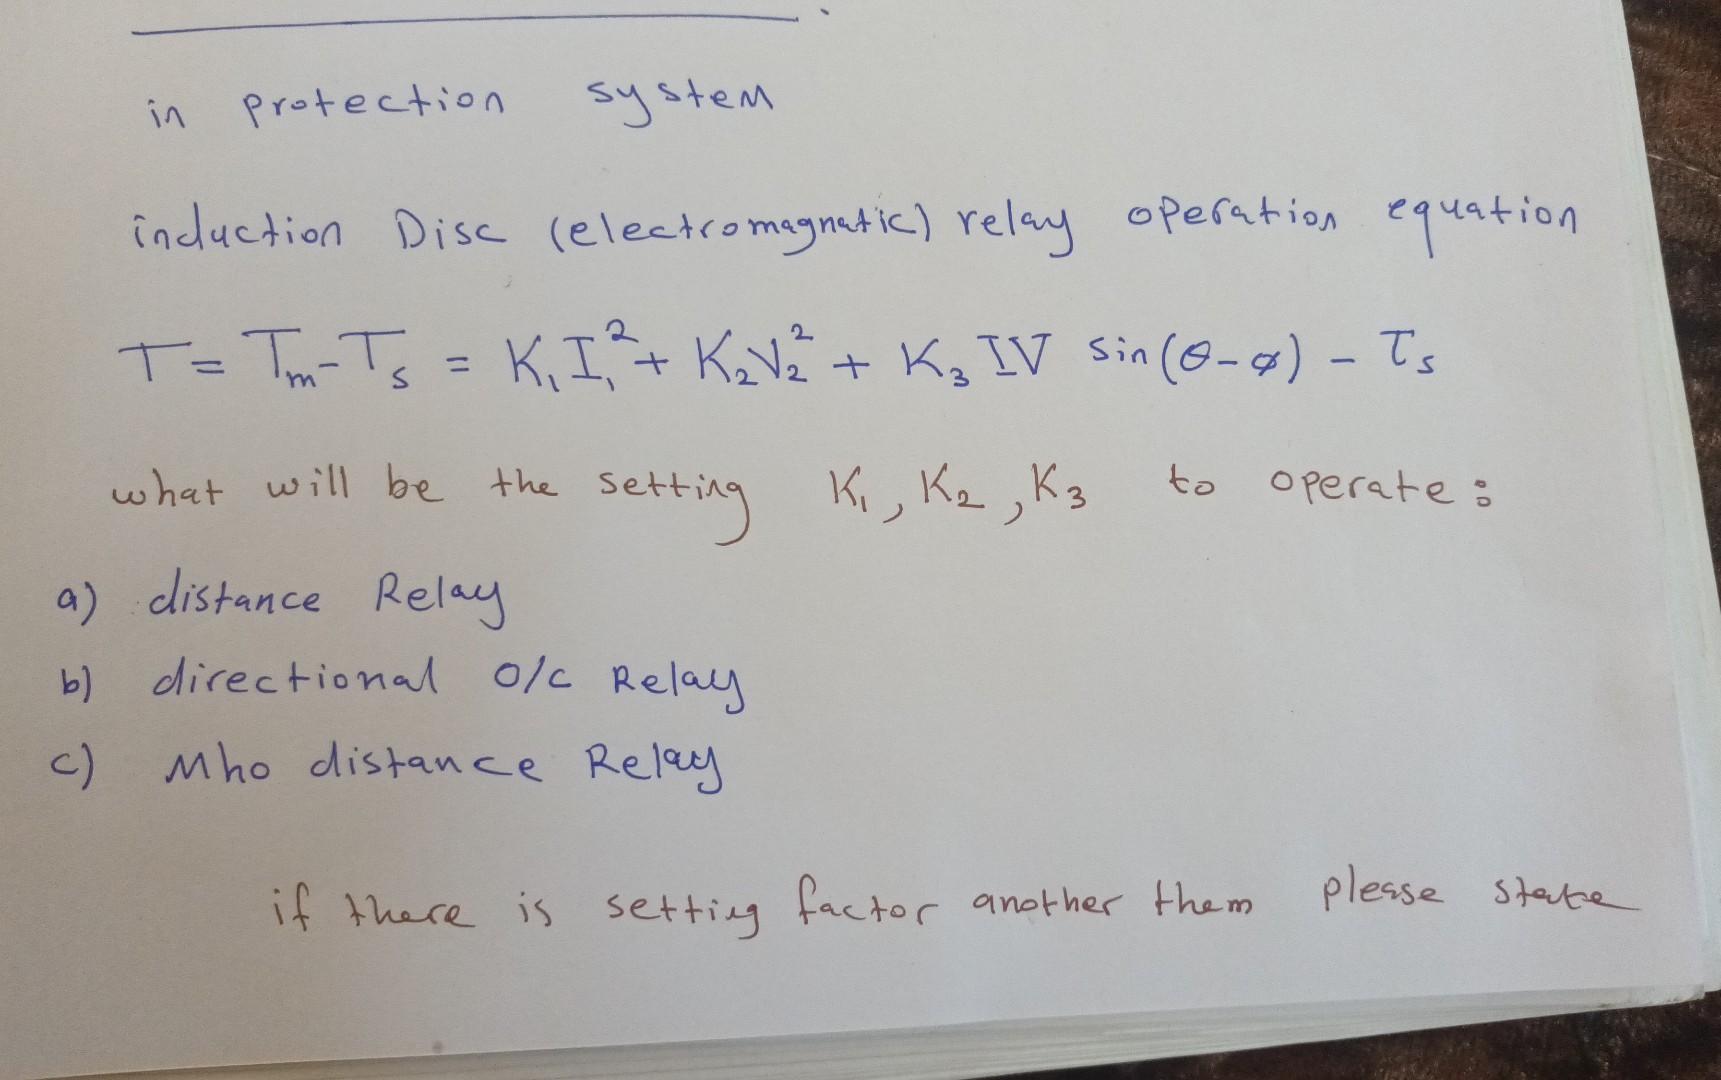 in protection system
induction Disc (electromagnetic) relay operation equation
T = Tm - Ts = K₁I₁² + K₂V₂² + K₃ IV sin(θ-φ) - τs
what will be the setting K₁, K₂, K₃ to operate:
a) distance Relay
b) directional o/c Relay
c) Mho distance Relay
if there is setting factor another them please state